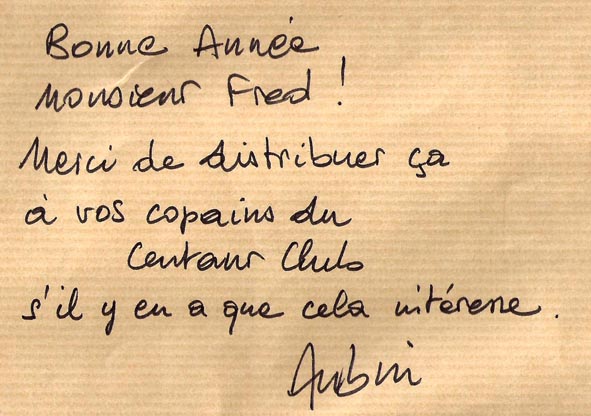 Bonne Année
Monsieur Fred !
Merci de distribuer ça
à vos copains du
Centaur Club
s'il y en a que cela intéresse.
Aubin